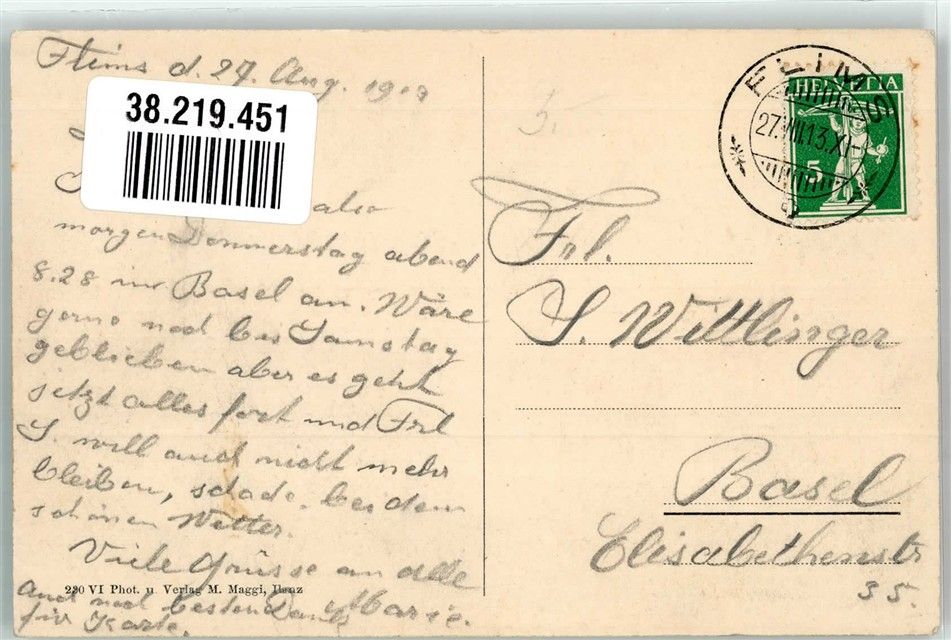 Flims d. 27. Aug. 1913
38.219.451
also
morgen Donnerstag abend
8.28 in Basel an. Wäre
gerne noch bis Samstag
geblieben aber es geht
jetzt alles fort und Frl
S. will auch nicht mehr
bleiben, schade bei dem
schönen Wetter.
Viele Grüsse an alle
Marie.
und noch besten Dank
für Karte.
230 VI Phot. u Verlag M. Maggi, Ilanz
5.
FLIMS
27.VIII.13.XI-
HELVETIA
5
Frl.
S. Wittlinger
Basel
Elisabethenstr
35.